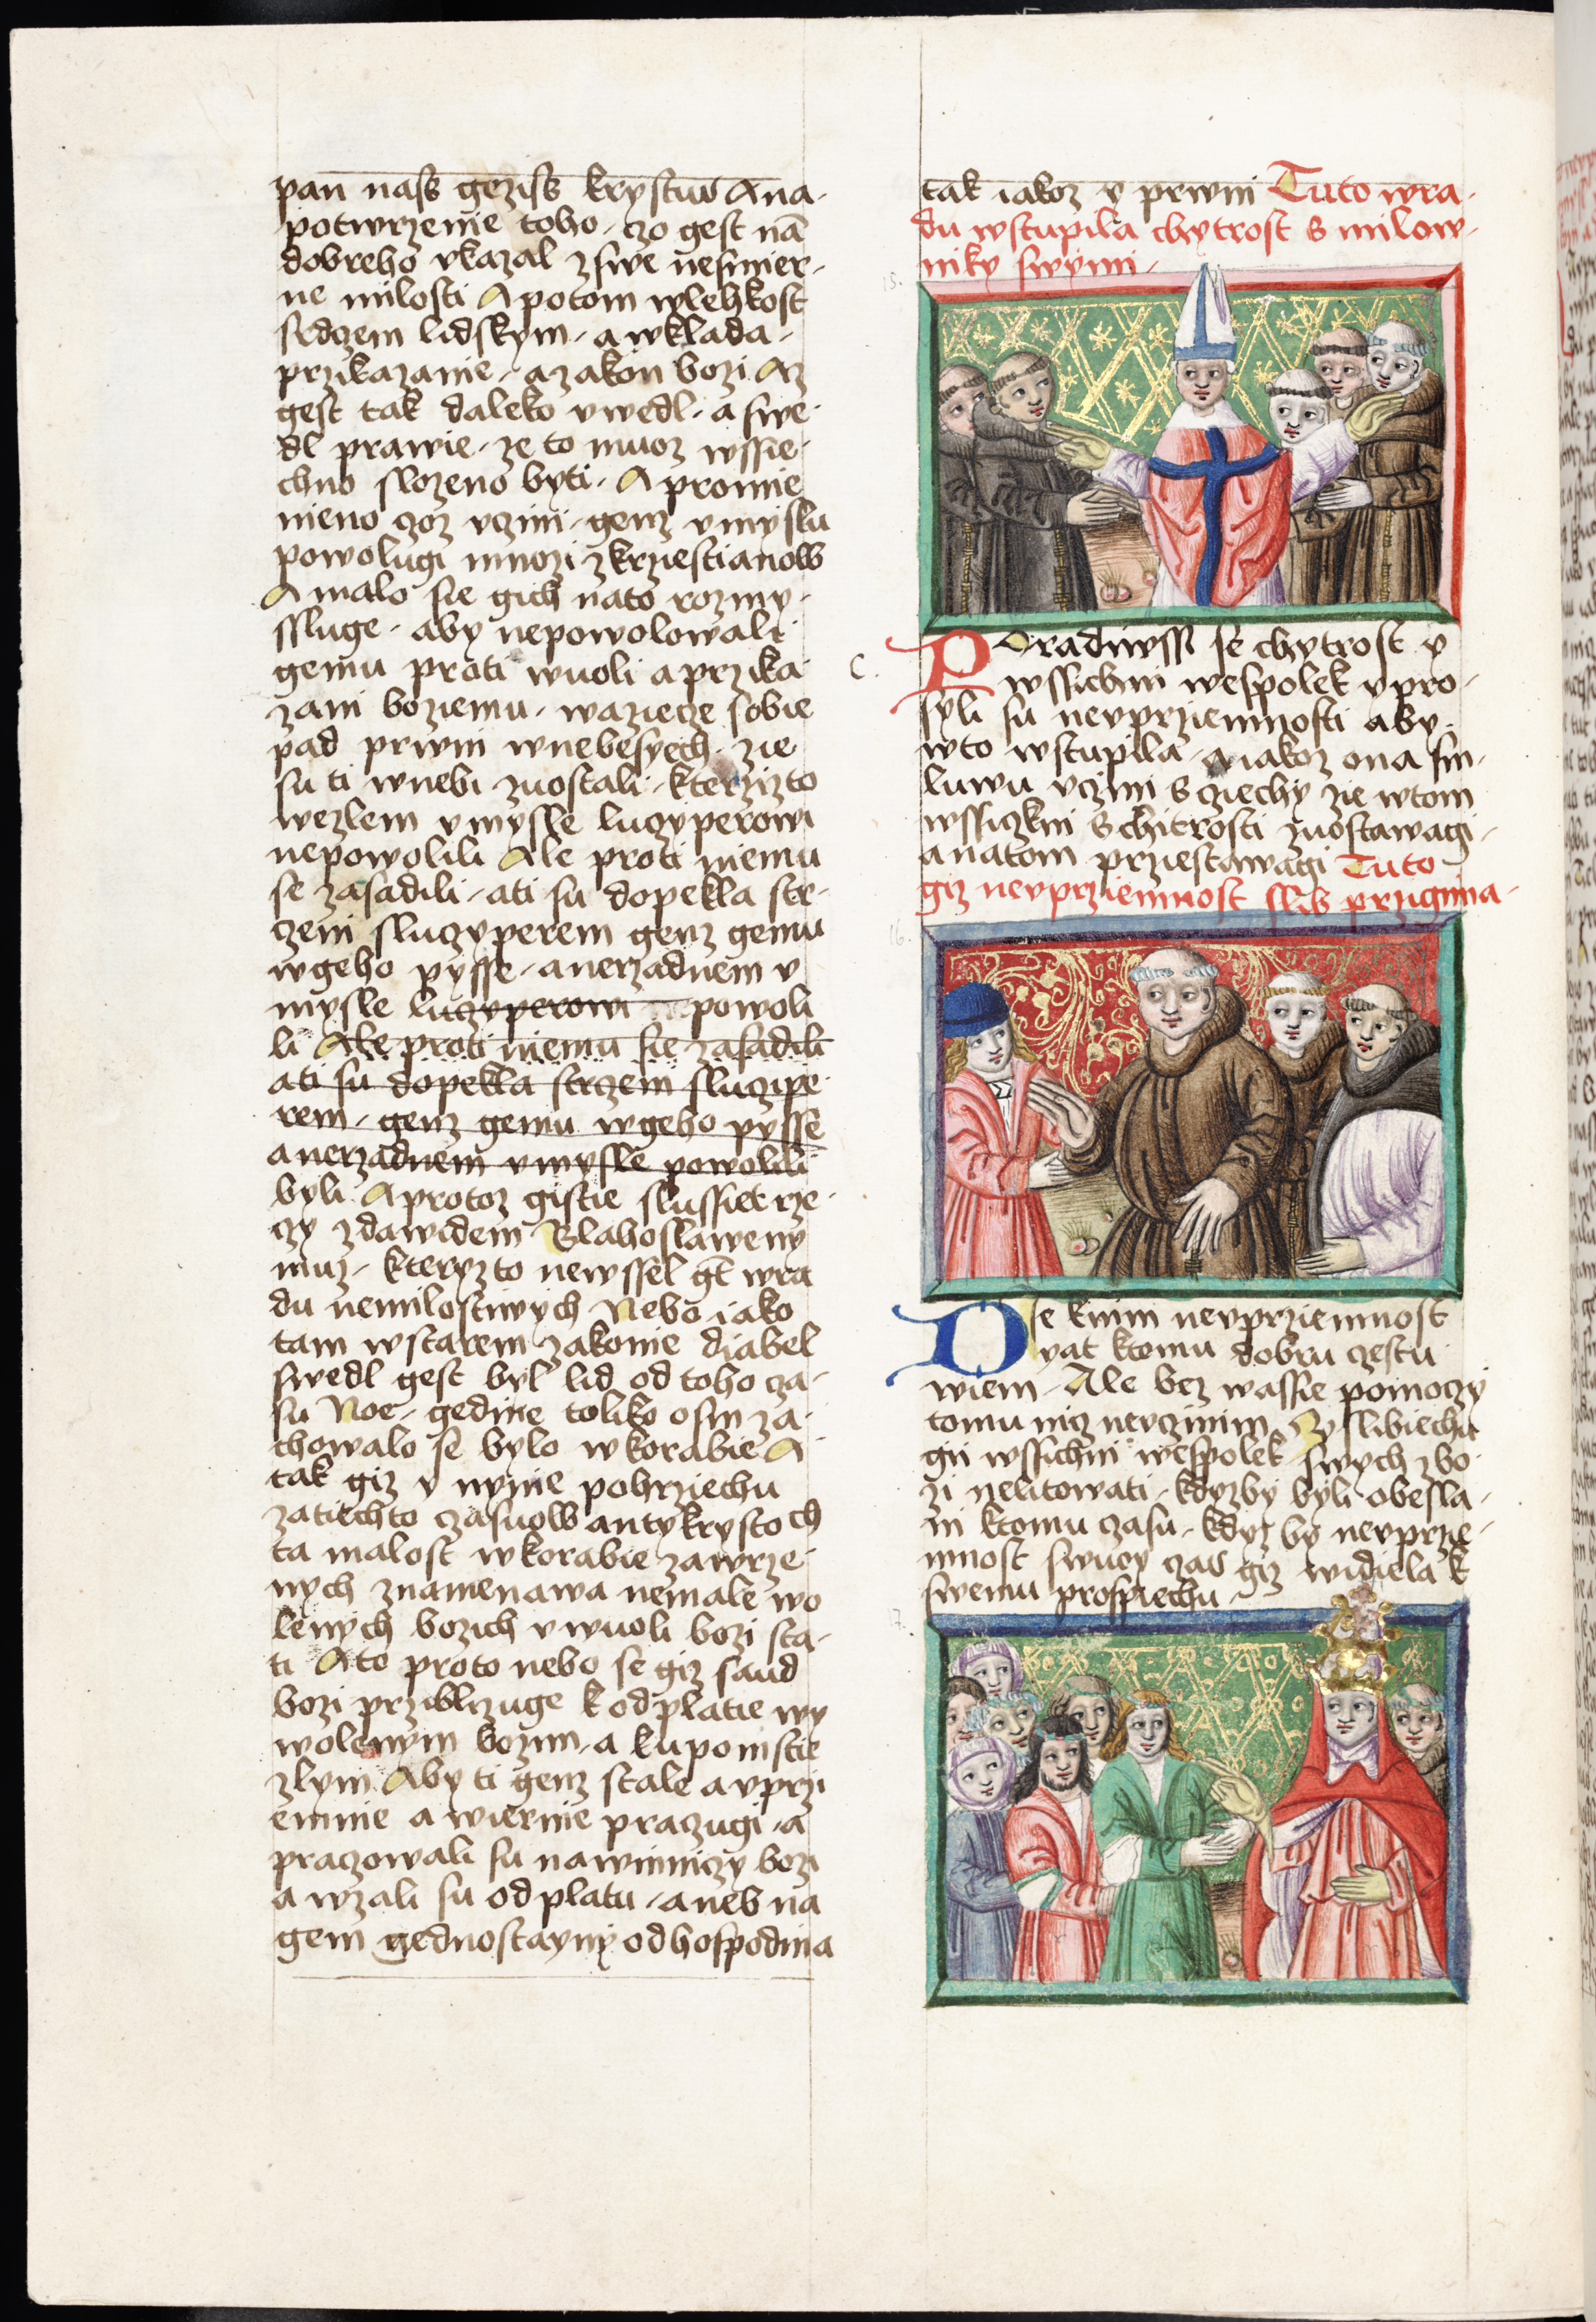 pan nass geziss krystus A na-
potwrzenie toho, czo gest nā
dobreho vkazal z swe nesmier-
ne milosti A potom wlehkost
srdczem lidskym, a wklada-
przikazanie, a zakon bozi Az
gest tak daleko vwedl, a swe-
dl prawie, ze to muoz wssie-
chno slozeno byti, A promie
nieno czoz vczini, genz vmyslu
powolugi mnozi z krziestianow
A malo sie gich nato rozmy-
ssluge, aby nepowolowali
gemu proti wuoli a przika
zani boziemu, waziecze sobie
pad prwni wnebesyech, zie
su ti wnebi zuostali, kterzizto
wezlem vmysle luczyperowi
nepowolili Ale proti niemu
se zasadili, ati su dopekla str-
czeni sluczyperem genz gemu
wgeho pysse, anerzadnem v
mysle luczyperowi nepowoli
li Ale proti niemu sie zasadili
ati su dopekla strczeni sluczipe-
rem, genz gemu wgeho pysse
anerzadnem vmysle powolili
byli A protoz gistie slussiet rze-
czy z dawidem Blahoslaweny
muz, kteryzto newssel gt wra
du nemilostiwych Nebo iako
tam wstarem zakonie diabel
swedl gest byl lid od toho cza-
su Noe, gedine toliko osm za-
chowalo se bylo wkorabie A
tak giz y nynie pohrziechu
zatiechto czasuow antykrystoch
ta malost wkorabie zawrze-
nych znamenawa nemale wo
lenych bozich vwuoli bozi sta-
ti A to proto nebo se giz saud
bozi przibliczuge k odplatie wy
wolenym bozim, a ku pomstie
zlym Aby ti genz stale a vprzi
emnie a wiernie praczugi, a
praczowali su nawinniczy bozi
a wzali su odplatu, aneb na
gem gednostayny od hospodina
tak iakoz y prwni Tuto wra-
du wstupila chytrost s milow-
niky swymi
15.
C.
Poradiwssi se chytrost y
wssichni wespolek y pro-
syli su nevprziemnosti aby
wto wstupila, a iakoz ona sm-
luwu vczini s cziechy zie wtom
wssiczkni s chitrosti zuostawagi,
a natom przestawagi Tuto
giz nevprziemnost slib przigima
16.
Dse knim nevprziemnost
yat ktomu dobru czestu
wiem, Ale bez wassie pomoczy
tomu nicz nevczinim, Ay slibiechu
gii wssichni wespolek swych zbo
zi nelitowati, kdyzby byli obesla-
ni ktomu czasu, kdyz by nevprzie-
mnost swuoy czas giz widiela k
swemu prospiechu
17.